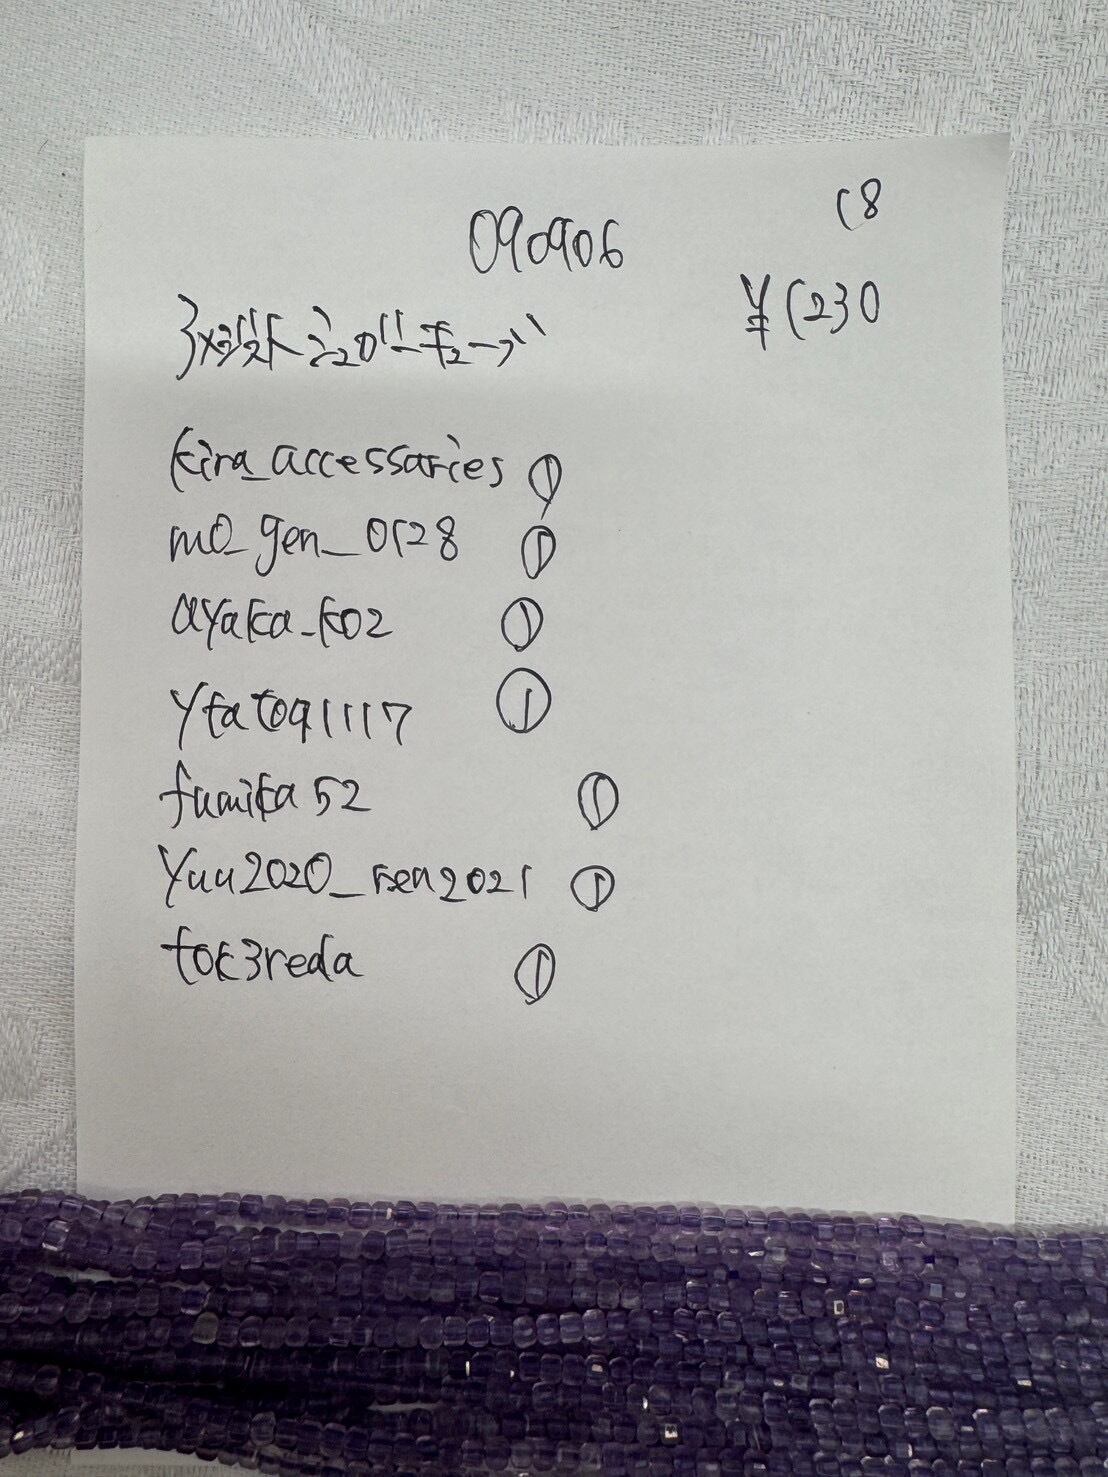 18
090906
¥1230
kira_accessaries ①
mo_gen_0128 ①
ayaka_k02 ①
ytatoa1117 ①
fumika52 ①
yuu2020_ren2021 ①
tok3reda ①